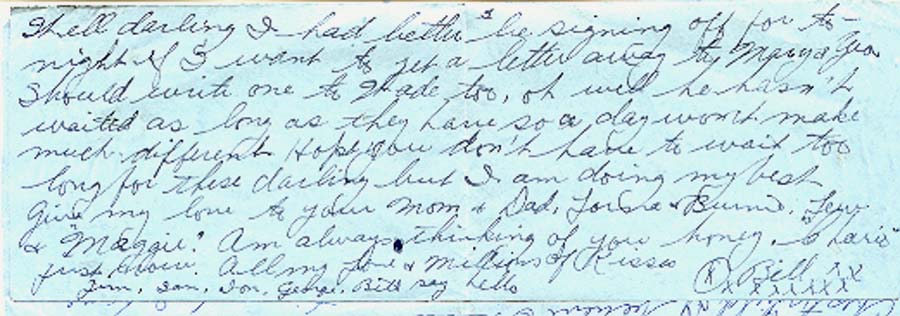 Well darling I had better be signing off for to-
night if I want to get a letter away to
Should write one to Wade too, oh well he hasn't
waited as long as they have so a day won't make
much different. Hope you don't have to wait too
long for these darling but I am doing my best
Give my love to your Mom & Dad, & Burnie,
& "Maggie". Am always thinking of you honey,
just about. All my love & Millions of Kisses
Bill x x
Jim, Don, George, Bill say hello
x x x x x x x